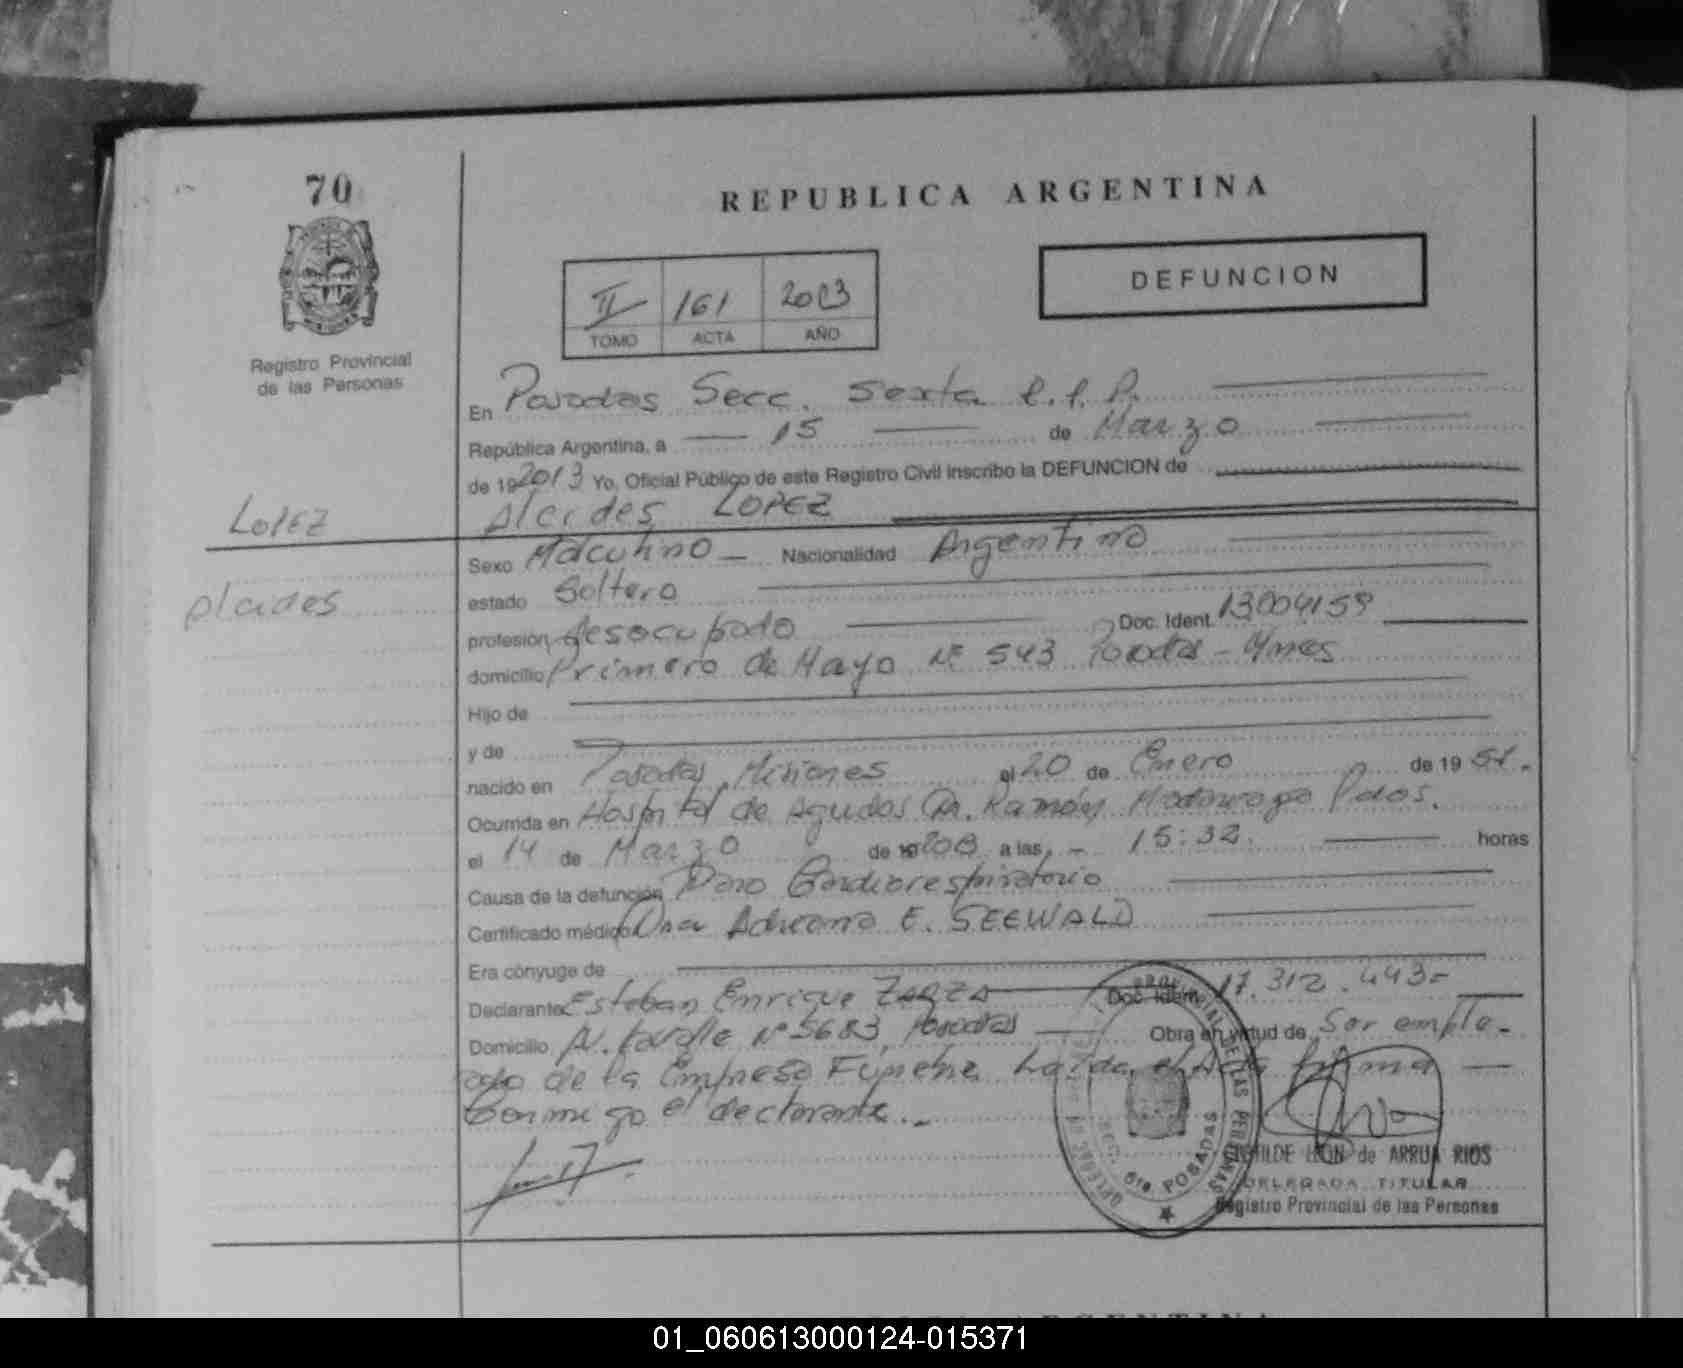 70
REPUBLICA ARGENTINA
DEFUNCION
II 161 2013
TOMO ACTA AÑO
Registro Provincial
de las Personas
En Posadas Secc. Sexta
República Argentina, a 15 de Marzo
de 19 2013 Yo, Oficial Público de este Registro Civil inscribo la DEFUNCION de
LOPEZ
Alcides LOPEZ
Sexo Masculino Nacionalidad Argentino
Alcides
estado Soltero
profesión desocupado Doc. Ident. 13004159
domicilio Primero de Mayo Nº 543 Posadas - Mnes
Hijo de
y de
nacido en Posadas, Misiones el 20 de Enero de 19 51.
Ocurrida en Hospital de Agudos Dr. Ramón Madariaga Pdas.
el 14 de Marzo de 19 2013 a las 15:32. horas
Causa de la defunción Paro Cardiorespiratorio
Certificado médico Dra Adriana E. SEEWALD
Era cónyuge de
Declarante Esteban Enrique ZARZA Doc. Ident. 17.312.443-
Domicilio Av. Lavalle Nº 5683, Posadas Obra en virtud de Ser emple-
ado de la Empresa Fúnebre Leída el Acta firma
Conmigo el declarante.-
6ta POSADAS
CLOTILDE LEON de ARRUA RIOS
DELEGADA TITULAR
Registro Provincial de las Personas
01_060613000124-015371